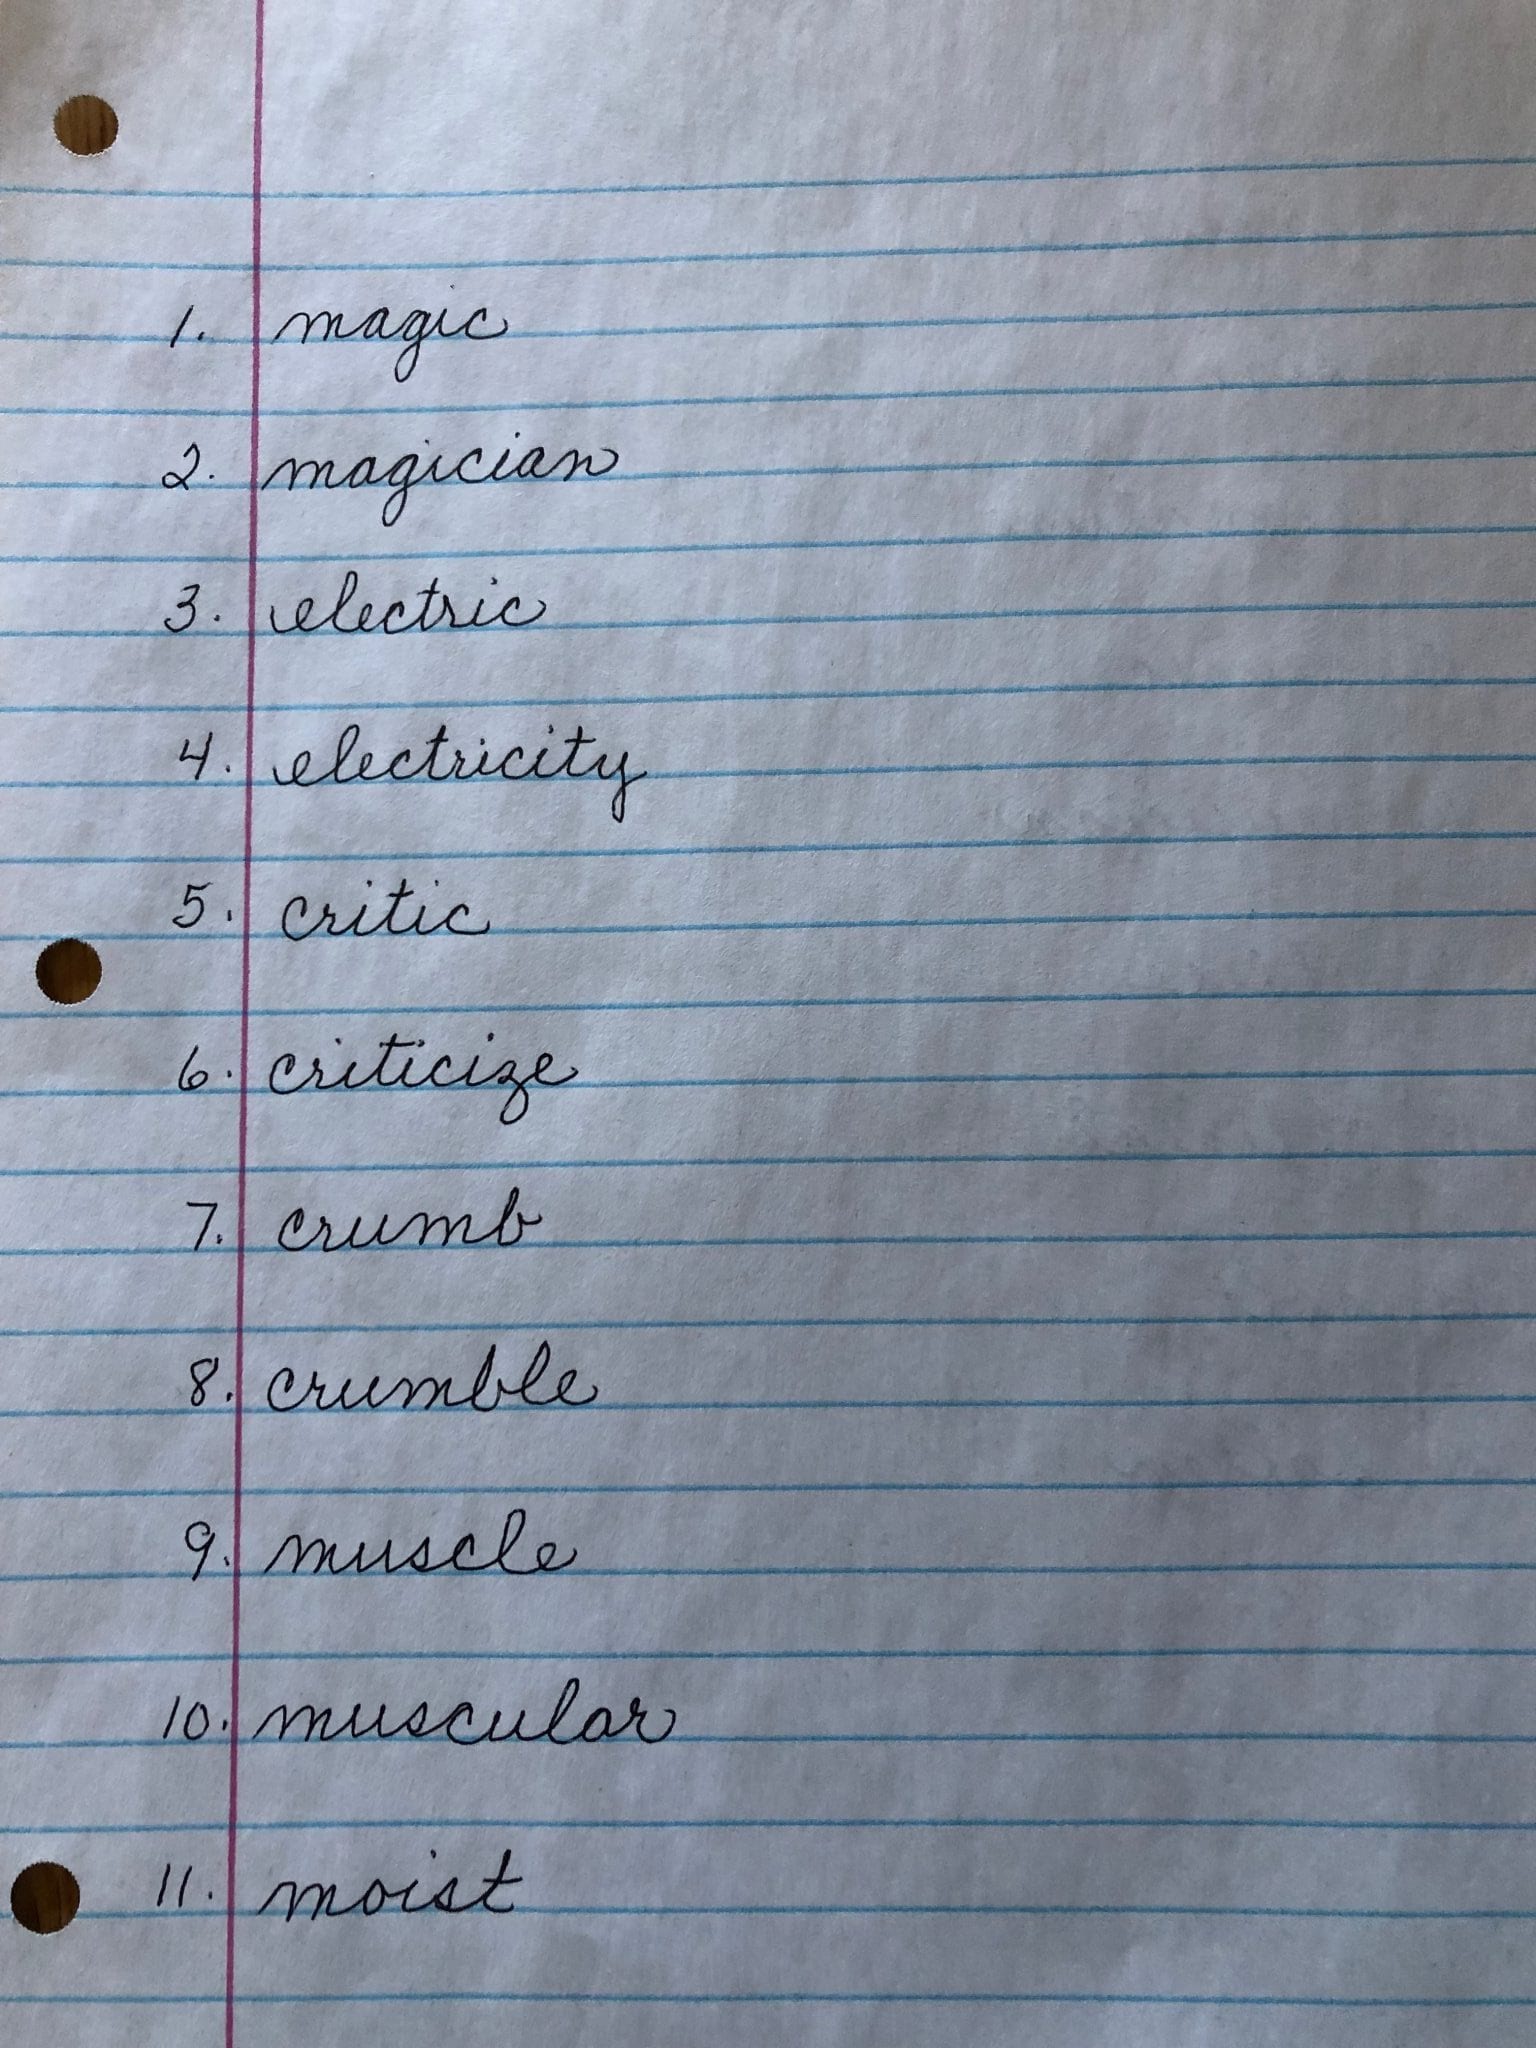 1. magic
2. magician
3. electric
4. electricity
5. critic
6. criticize
7. crumb
8. crumble
9. muscle
10. muscular
11. moist